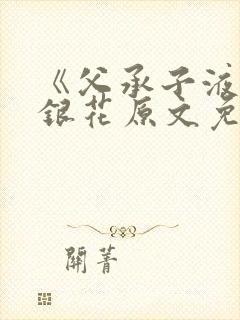 《父承子液
銀花原文免
關菁